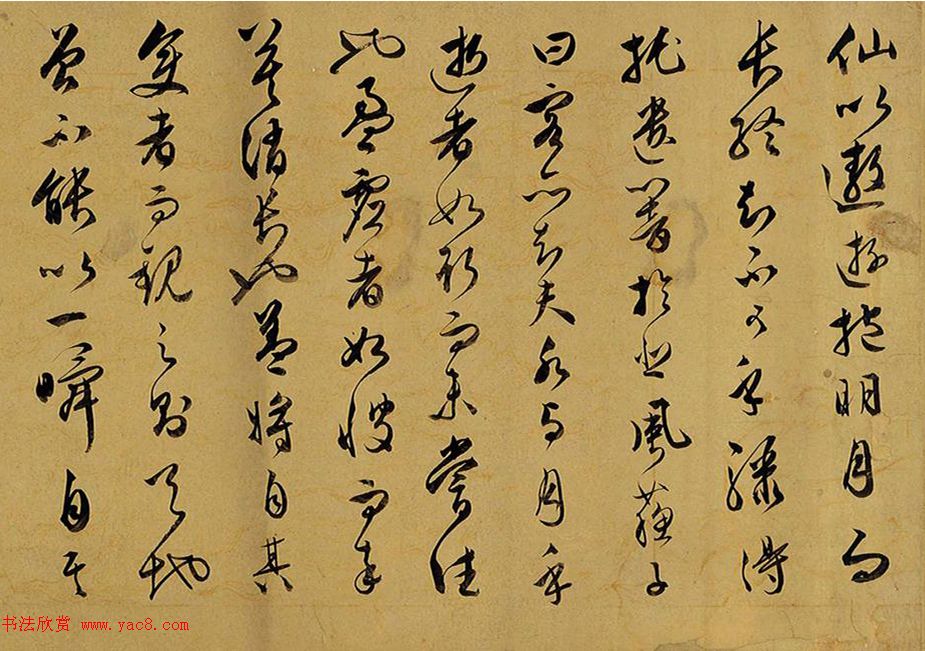 仙以遨遊抱明月而
長終知不可乎驟得
托遺響於悲風蘇子
曰客亦知夫水与月乎
逝者如斯而未嘗往
也盈虛者如彼而卒
莫消長也盖將自其
變者而觀之則天地
曾不能以一瞬自其
书法欣赏 www.yac8.com